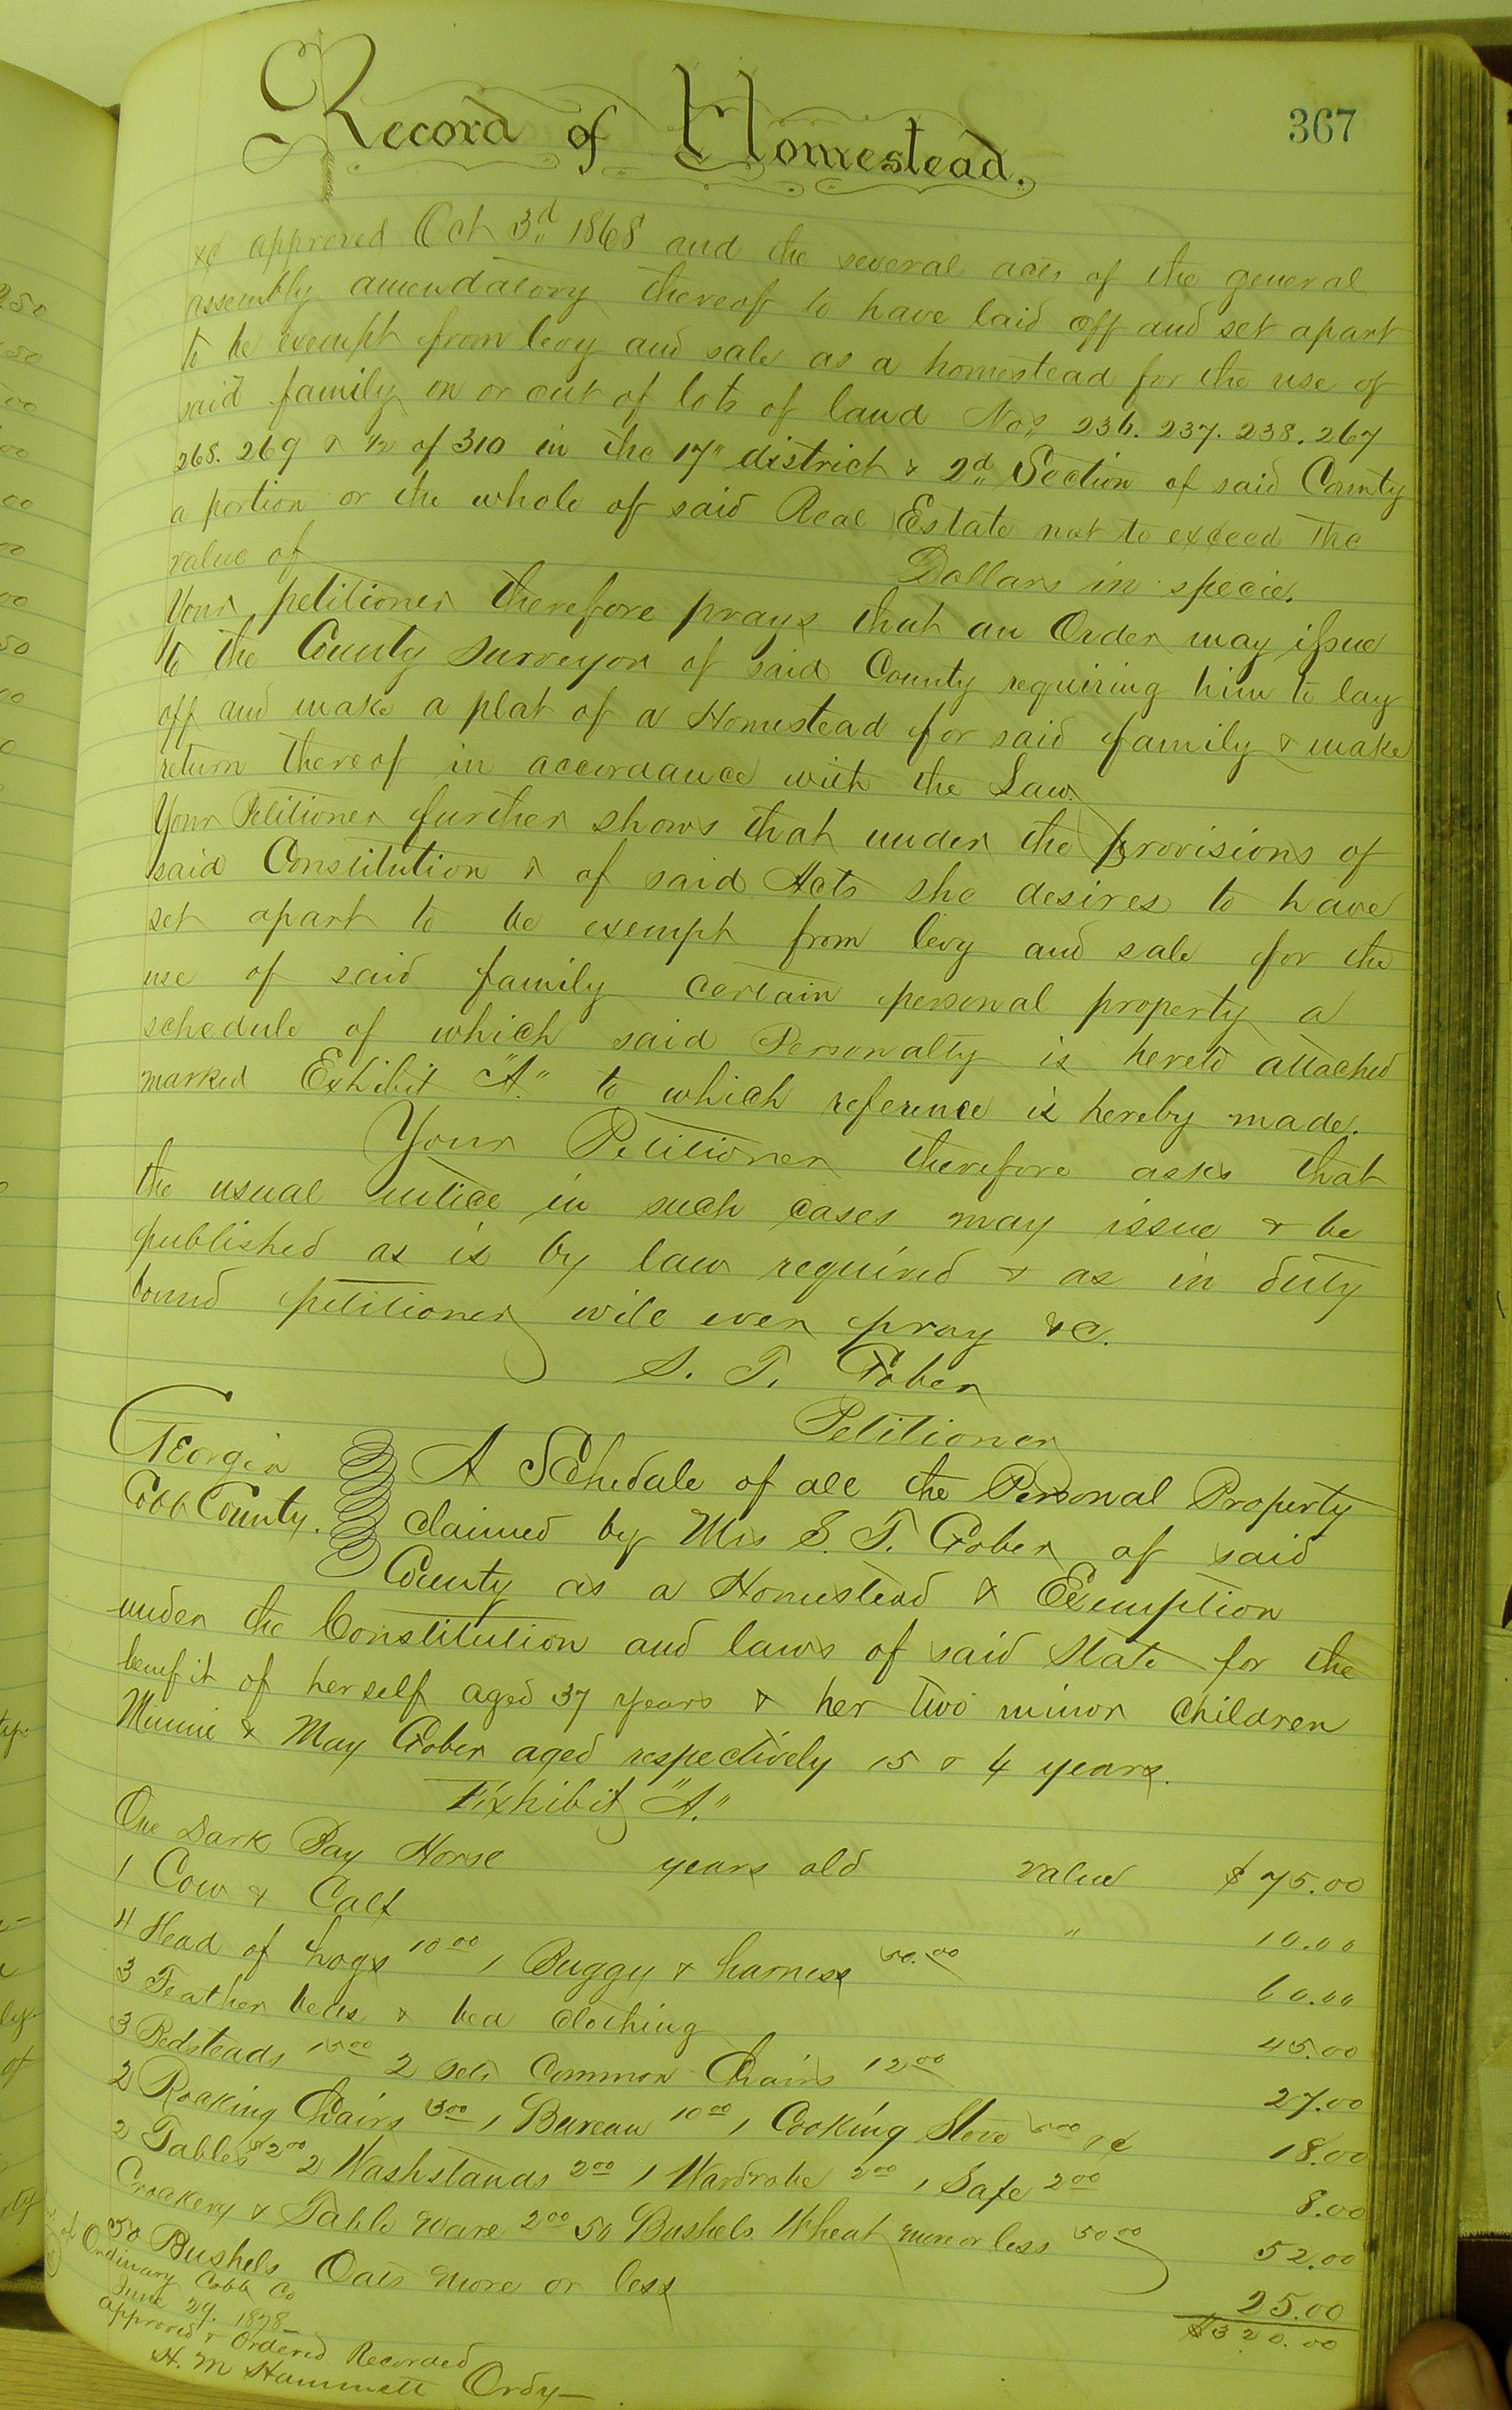 Record of Homestead.
367
&c approved Oct 3d 1868 and the several acts of the general
assembly amendatory thereof to have laid off and set apart
to be exempt from levy and sale as a homestead for the use of
said family on or out of lots of land Nos 236. 237. 238. 267
268. 269 & 1/2 of 310 in the 17" district & 2d Section of said County
a portion or the whole of said Real Estate not to exceed the
value of Dollars in specie.
Your petitioner therefore prays that an Order may issue
to the County Surveyor of said County requiring him to lay
off and make a plat of a Homestead for said family & make
return thereof in accordance with the Law.
Your Petitioner further shows that under the provisions of
said Constitution & of said Acts she desires to have
set apart to be exempt from levy and sale for the
use of said family certain personal property a
schedule of which said Personalty is hereto attached
marked Exhibit "A" to which reference is hereby made.
Your Petitioner therefore asks that
the usual notice in such cases may issue & be
published as is by law required & as in duty
bound petitioner will ever pray &c.
S. T. Gober
Petitioner
Georgia
Cobb County.
A Schedale of all the Personal Property
claimed by Mrs S. T. Gober of said
County as a Homestead & Exemption
under the Constitution and laws of said State for the
benefit of herself aged 37 years & her two minor children
Minnie & May Gober aged respectively 15 & 4 years.
Exhibit "A."
One Dark Bay Horse years old value $75.00
1 Cow & Calf " 10.00
4 Head of hogs 10 00 1 Buggy & harness 50.00 60.00
3 Feather beds & bed clothing 45.00
3 Bedsteads 15 00 2 sets Common Chairs 12 00 27.00
2 Rocking Chairs 3 00 1 Bureau 10 00 1 Cooking Stove 5 00 &c 18.00
2 Tables $2 00 2 Washstands 2 00 1 Wardrobe 2 00 1 Safe 2 00 8.00
Crockery & Table ware 2 00 50 Bushels Wheat more or less 50 00 52.00
50 Bushels Oats more or less 25.00
$320.00
Ordinary Cobb Co
June 29. 1878
approved & Ordered Recorded
H. M Hammett Ordy